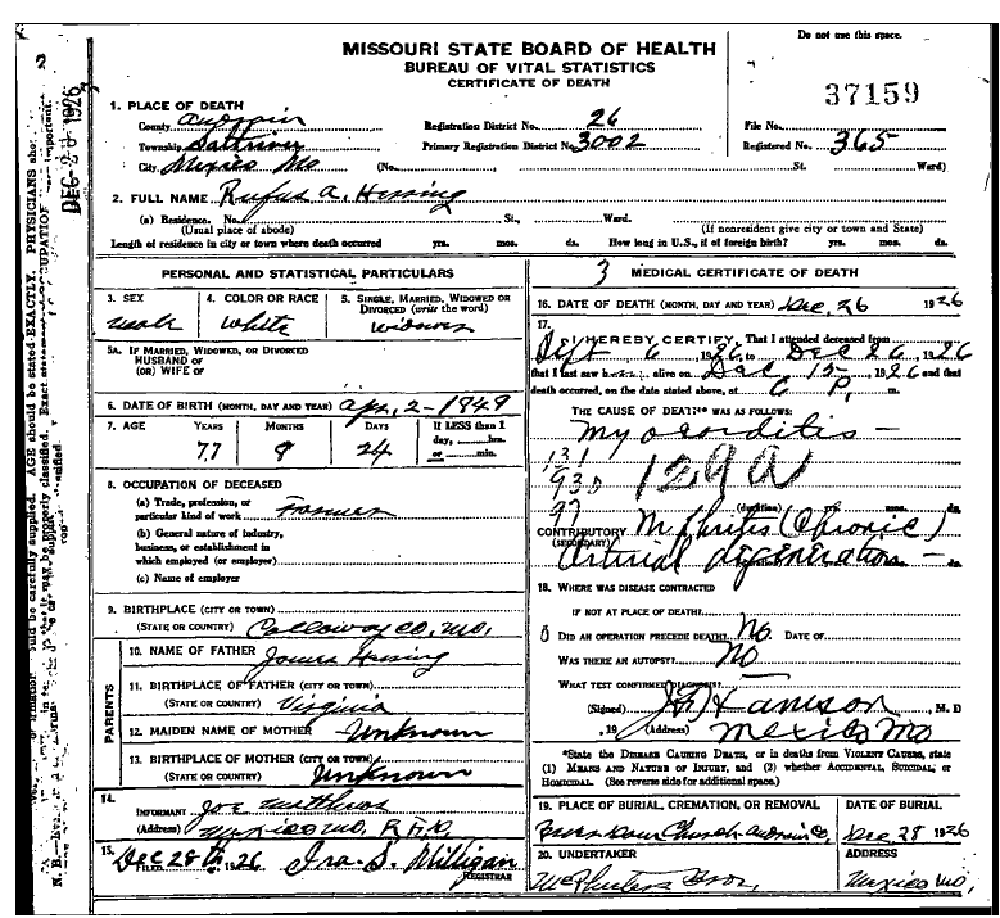 Do not use this space.
MISSOURI STATE BOARD OF HEALTH
BUREAU OF VITAL STATISTICS
CERTIFICATE OF DEATH
37159
1. PLACE OF DEATH
County Audrain Registration District No. 26 File No.
Township Saltriver Primary Registration District No. 3002 Registered No. 365
City Mexico Mo (No. St. Ward)
2. FULL NAME Rufus A. Hersing
(a) Residence. No. St., Ward.
(Usual place of abode) (If nonresident give city or town and State)
Length of residence in city or town where death occurred yrs. mos. ds. How long in U.S., if of foreign birth? yrs. mos. ds.
PERSONAL AND STATISTICAL PARTICULARS
3. SEX 4. COLOR OR RACE 5. SINGLE, MARRIED, WIDOWED OR DIVORCED (write the word)
male White widower
5A. IF MARRIED, WIDOWED, OR DIVORCED
HUSBAND OF
(OR) WIFE OF
6. DATE OF BIRTH (MONTH, DAY AND YEAR) Apr, 2 - 1849
7. AGE YEARS MONTHS DAYS If LESS than 1 day, hrs. or min.
77 9 24
8. OCCUPATION OF DECEASED
(a) Trade, profession, or
particular kind of work Farmer
(b) General nature of industry,
business, or establishment in
which employed (or employer)
(c) Name of employer
9. BIRTHPLACE (CITY OR TOWN)
(STATE OR COUNTRY) Calloway Co, Mo,
PARENTS
10. NAME OF FATHER James Hersing
11. BIRTHPLACE OF FATHER (CITY OR TOWN)
(STATE OR COUNTRY) Virginia
12. MAIDEN NAME OF MOTHER Unknown
13. BIRTHPLACE OF MOTHER (CITY OR TOWN)
(STATE OR COUNTRY) Unknown
14.
INFORMANT Joe Matthews
(Address) Mexico Mo, R.F.D.
15.
FILED Dec 28th, 1926 Ira. S. Milligan
REGISTRAR
3 MEDICAL CERTIFICATE OF DEATH
16. DATE OF DEATH (MONTH, DAY AND YEAR) Dec, 26 1926
17.
I HEREBY CERTIFY, That I attended deceased from
Sept 6, 1926, to Dec 26, 1926
that I last saw h alive on Dec 15, 1926 and that
death occurred, on the date stated above, at 6 P. m.
THE CAUSE OF DEATH* WAS AS FOLLOWS:
Myocorditis -
131
93D 129A
97
(duration) yrs. mos. ds.
CONTRIBUTORY Nephritis (Chronic)
(SECONDARY)
Arterial degeneration -
18. WHERE WAS DISEASE CONTRACTED
IF NOT AT PLACE OF DEATH?
0 DID AN OPERATION PRECEDE DEATH? No. DATE OF
WAS THERE AN AUTOPSY? No
WHAT TEST CONFIRMED DIAGNOSIS?
(Signed) Harrison, M. D
, 19 (Address) Mexico Mo
*State the DISEASE CAUSING DEATH, or in deaths from VIOLENT CAUSES, state
(1) MEANS AND NATURE OF INJURY, and (2) whether ACCIDENTAL, SUICIDAL, or
HOMICIDAL. (See reverse side for additional space.)
19. PLACE OF BURIAL, CREMATION, OR REMOVAL DATE OF BURIAL
Church Audrain Co, Dec 28 1926
20. UNDERTAKER ADDRESS
McPheeters Bros, Mexico Mo,